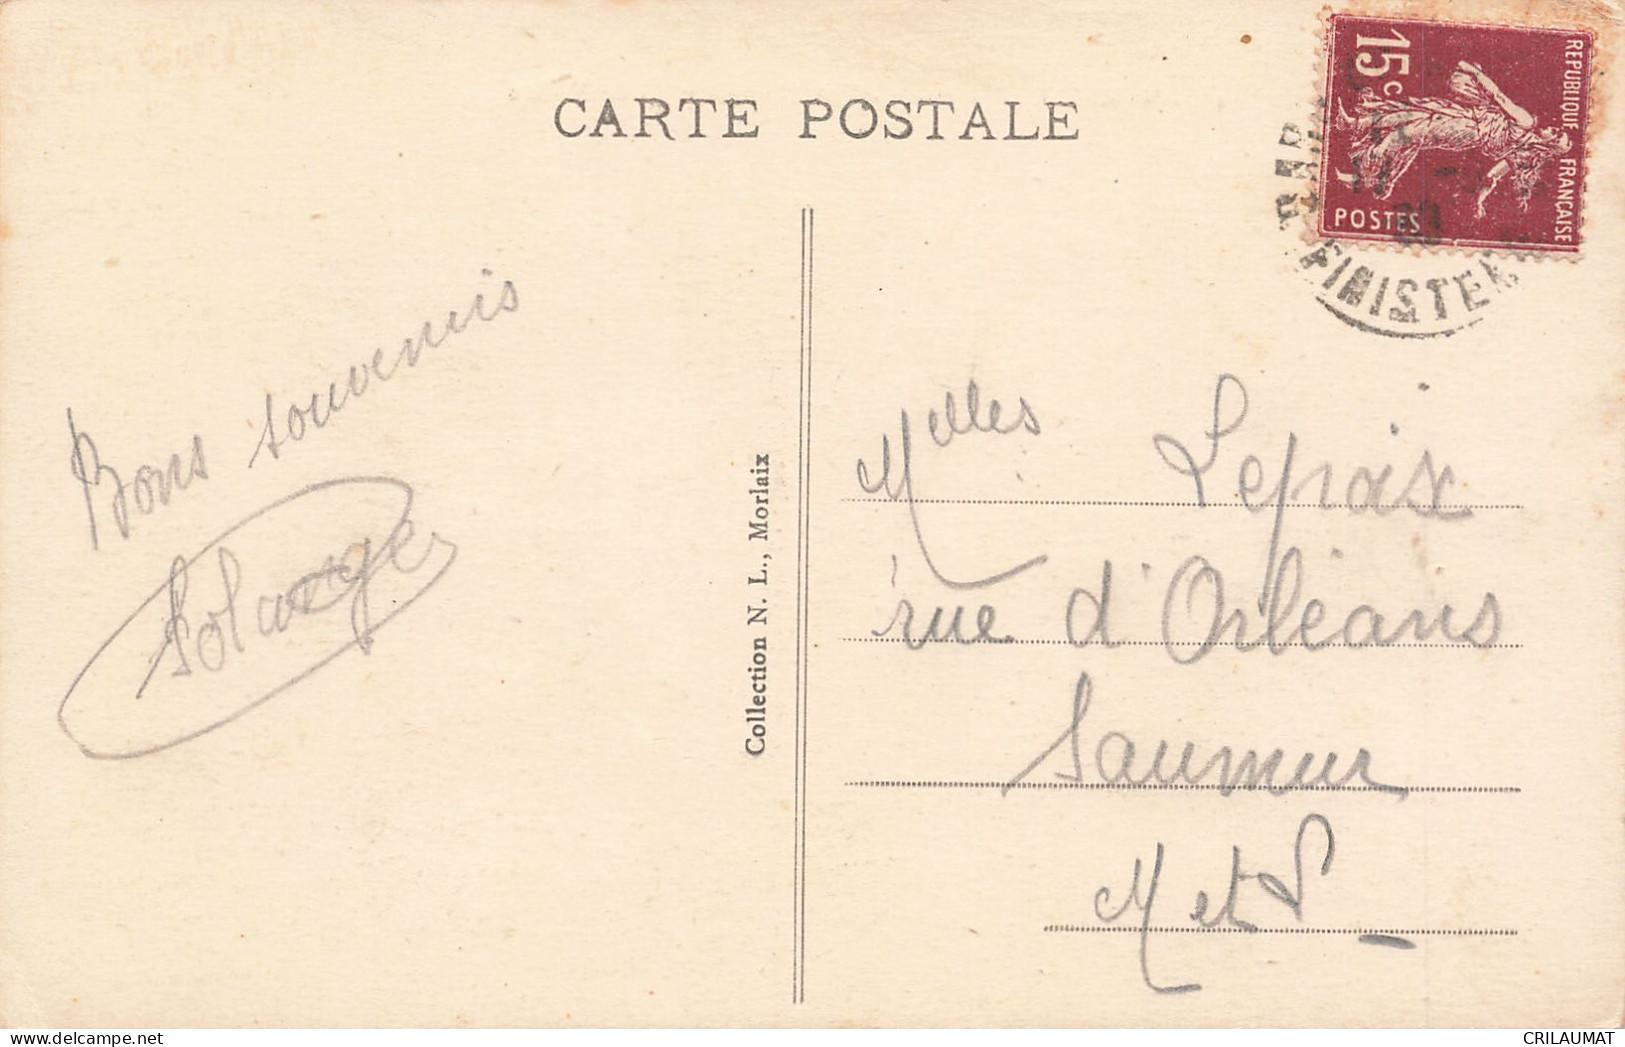 CARTE POSTALE
REPUBLIQUE FRANÇAISE
15c
POSTES
17
FINISTER
Bons souvenirs
Solange
Collection N. L., Morlaix
Melles Lepoix
rue d'Orléans
Saumur
M et L
CRILAUMAT